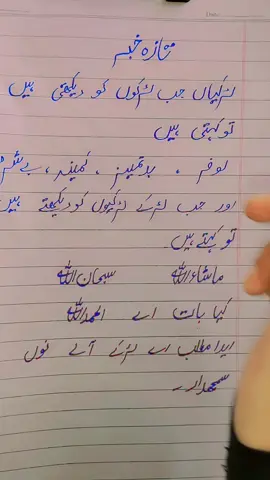 تازہ خبر
لڑکیاں جب لڑکوں کو دیکھتی ہیں
تو کہتی ہیں
لوفر ۔ بدتمیز ، کمینہ ، بےشرم
اور جب لڑکے لڑکیوں کو دیکھتے ہیں
تو کہتے ہیں۔
ماشاءاللہ سبحان اللہ
کیا بات اے الحمداللہ
ایدا مطلب اے لڑکے آلے نوں